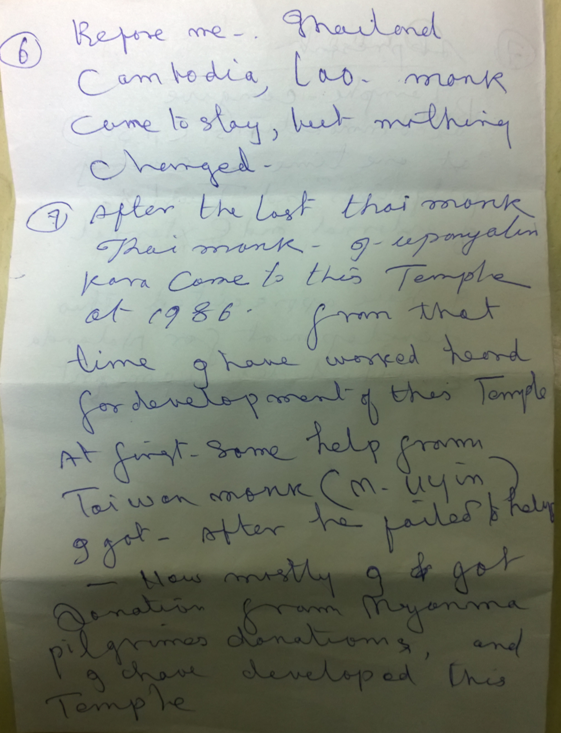 ⑥ Before me-. Thailand
Cambodia, Lao. monk
came to stay, but nothing
changed-
⑦ After the last thai monk
Thai monk - I -
Kara Came to this Temple
at 1986. from that
time I have worked heard
for development of this Temple
At first- Some help from
Taiwan monk (M. Uyin)
I got- After he failed to help
- Now mostly I got
Donation from Myanma
pilgrimes donations, and
I have developed this
Temple